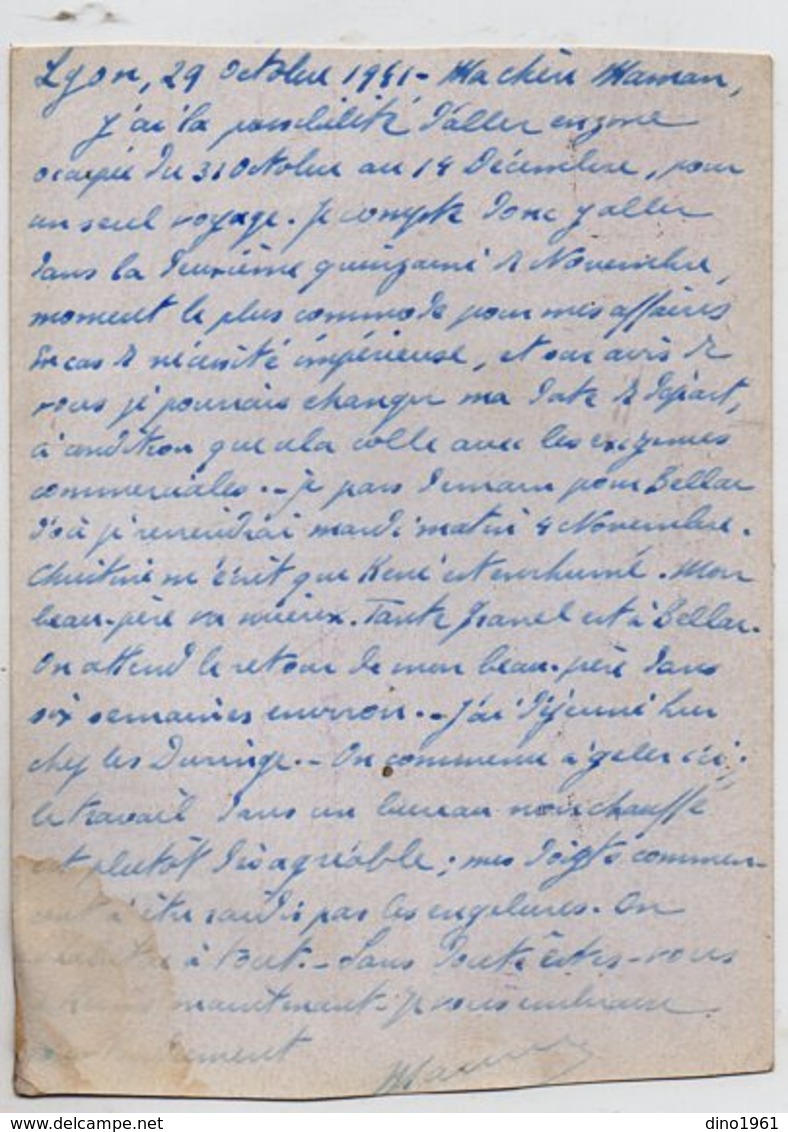 Lyon, 29 Octobre 1941 - Ma chère Maman,
J'ai la possibilité d'aller en zone
occupée du 31 Octobre au 14 Décembre, pour
un seul voyage. Je compte donc y aller
dans la deuxième quinzaine de Novembre,
moment le plus commode pour mes affaires
En cas de nécessité impérieuse, et sur avis de
vous je pourrais changer ma date de départ,
à condition que cela colle avec les exigences
commerciales. - Je pars demain pour Bellac
d'où je reviendrai mardi matin 4 Novembre.
Christine m'écrit que René est enrhumé. Mon
beau-père va mieux. Tante est à Bellac.
On attend le retour de mon beau-père dans
six semaines environ. - J'ai déjeuné hier
chez les Duringe. - On commence à geler ici ;
le travail dans un bureau non chauffé
est plutôt désagréable ; mes doigts commen-
cent à être raidis par les engelures. On
à tout. - Sans doute êtes-vous
maintenant. Je vous embrasse
dino1961